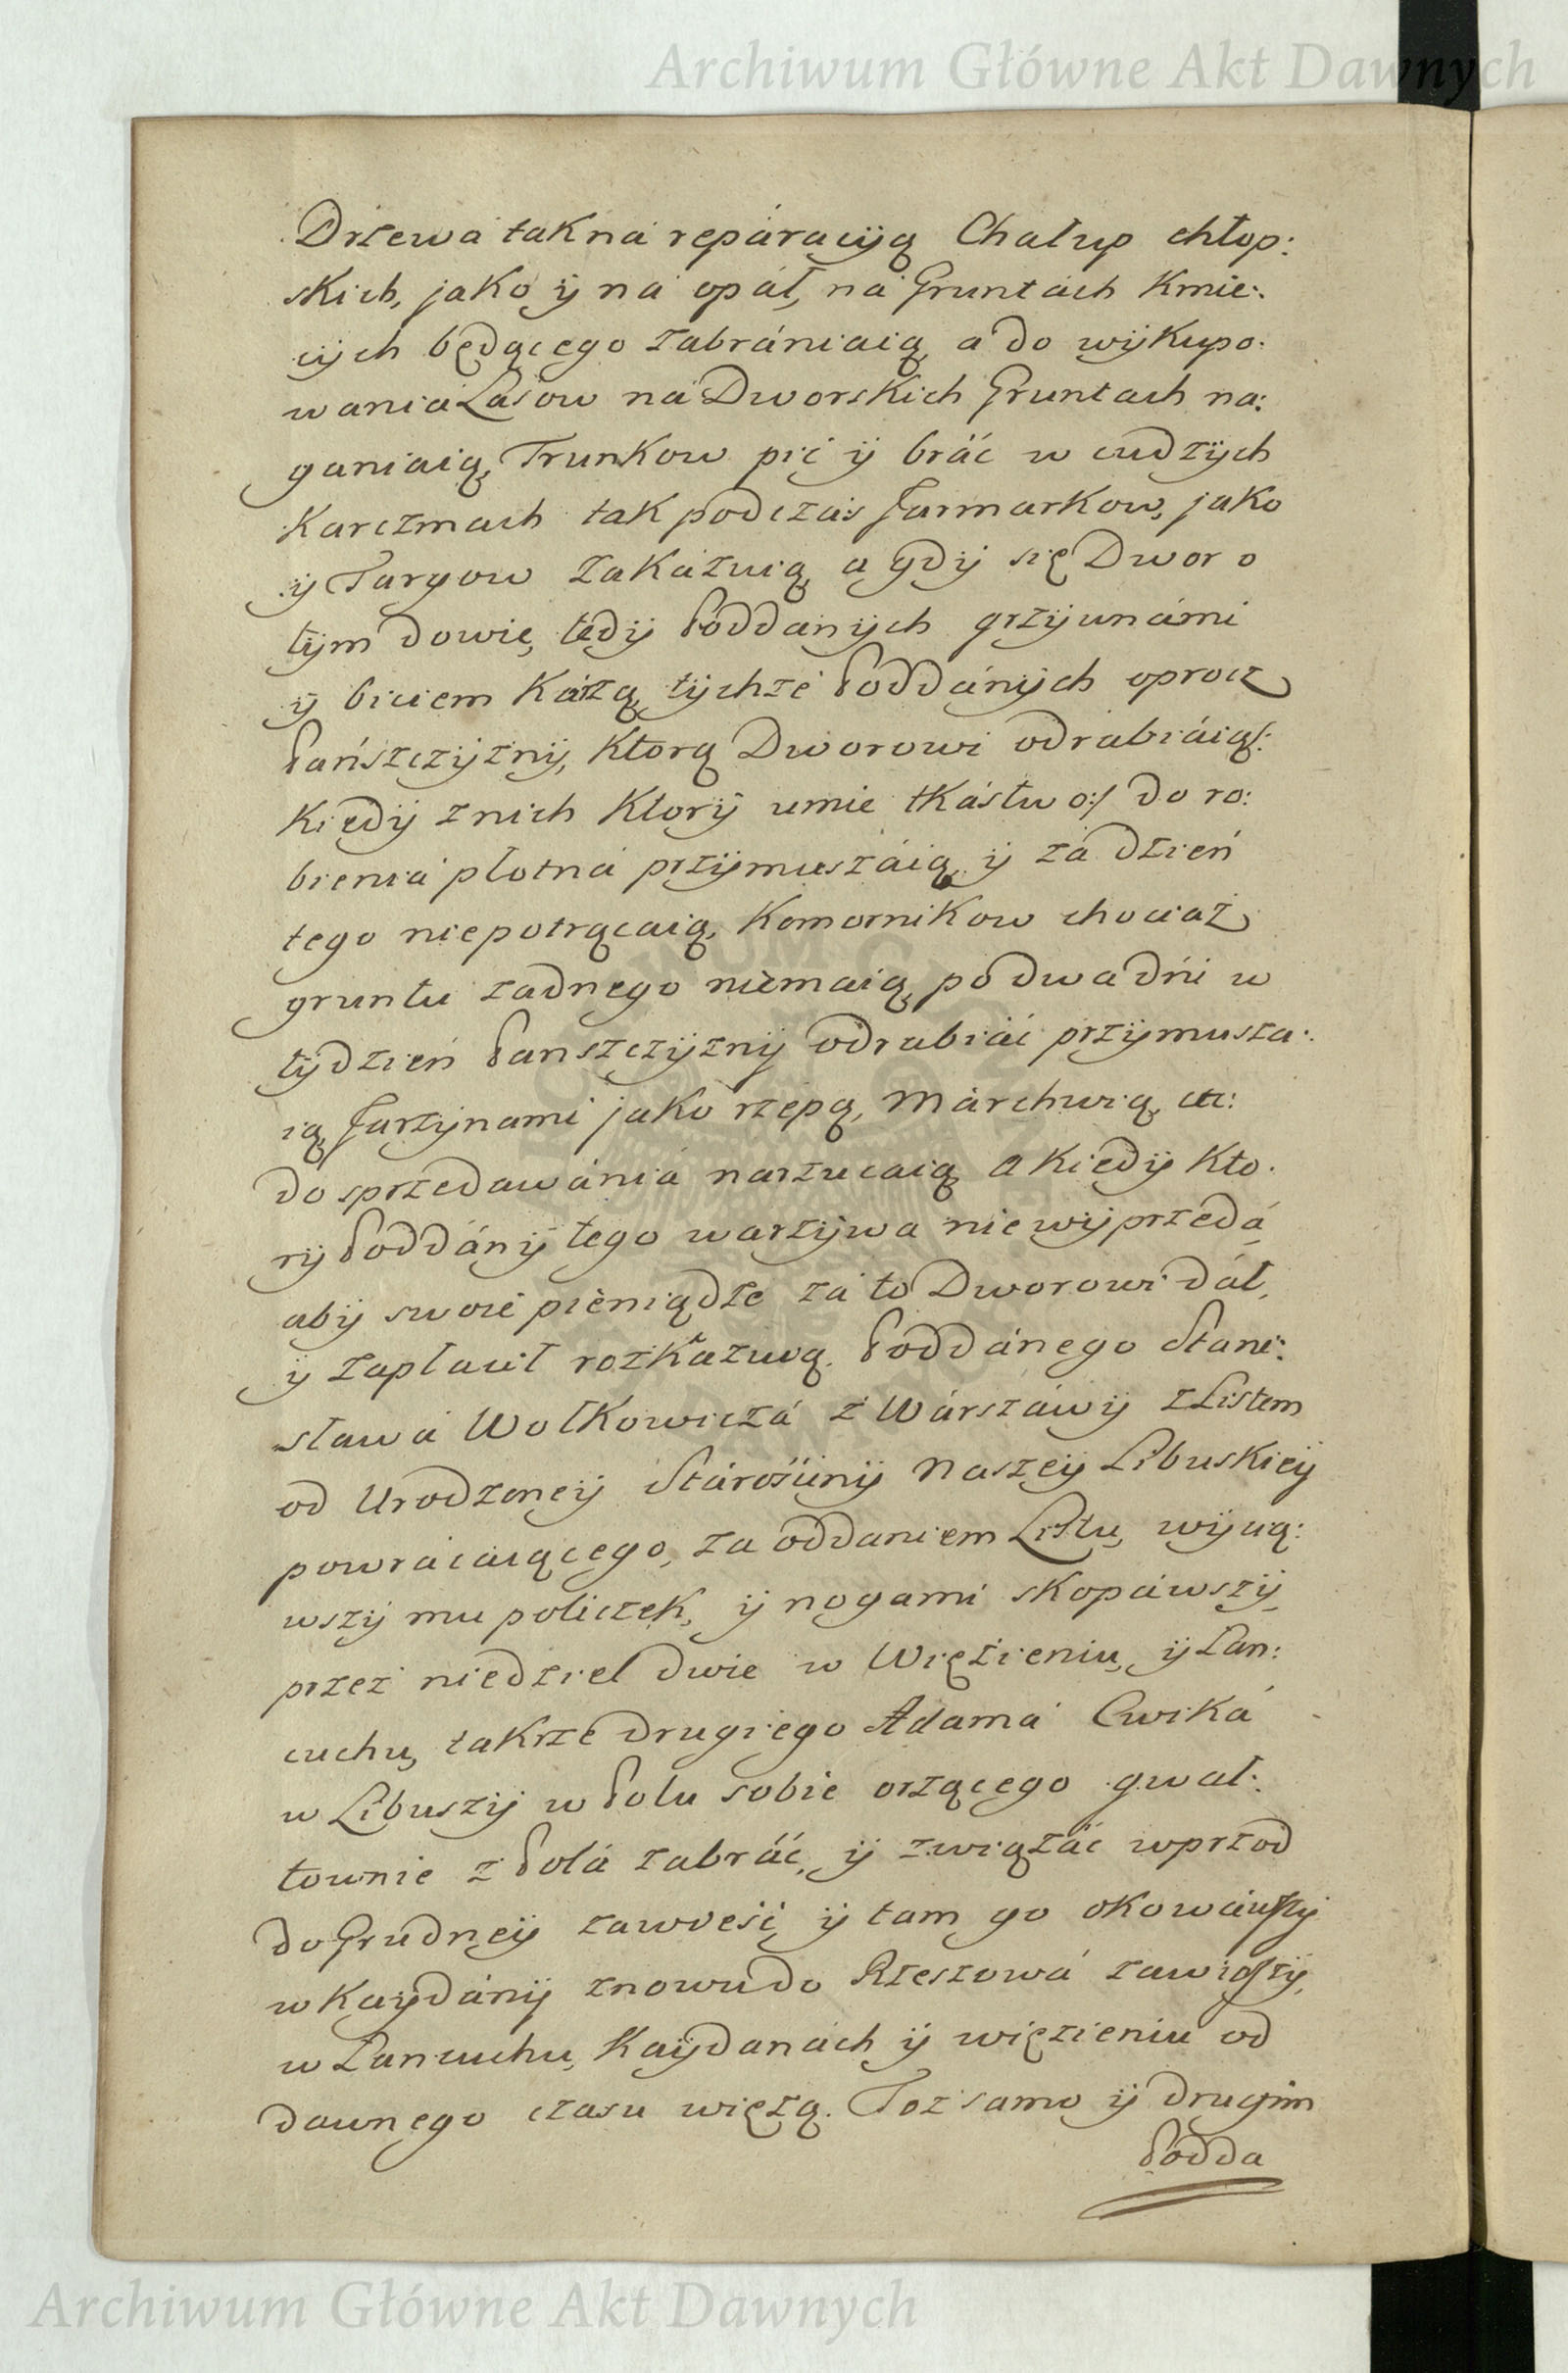 Archiwum Główne Akt Dawnych
Drzewa tak na reparacyją Chałup chłop:
skich, jako ÿ na opáł, na Gruntách Kmie:
cÿch będącego zabrániaią, a do wÿkupo:
wania Lasow na Dworskich Gruntach na:
ganiaią, Trunkow pić ÿ bráć w cudzÿch
Karczmach tak podczás Jarmarkow, jako
ÿ Targow zakázuią, a gdÿ się Dwor o
tÿm dowie, tedÿ Poddanÿch grzÿwnámi
ÿ biciem kárzą, tÿchże Poddánÿch oprocz
Pańszczÿznÿ, Ktorą Dworowi odrabiáią/:
Kiedÿ z nich Ktorÿ umie tkástwo:/ do ro:
bieniá płotná przÿmuszáią, ÿ zá dzień
tego niepotrącaią, Komornikow chociaż
gruntu żadnego niemaią, po dwa dńi w
tÿdzień Panszczÿznÿ odrabiáć przÿmusza:
ią, Jarzÿnami jako rzepą, Márchwią etc:
do sprzedawániá narzucaią a kiedÿ kto:
rÿ Poddánÿ tego warzÿwa nie wÿprzedá,
abÿ swoie pieniądze zá to Dworowi dáł,
ÿ zapłacił rozkazuią. Poddánego Stani:
sława Wołkowiczá z Wárszáwÿ z Listem
od Urodzoneÿ Stárośćinÿ Naszeÿ Libuskieÿ
powracaiącego, za oddaniem Listu, wÿcią:
wszÿ mu policzek, ÿ nogami skopáwszÿ,
przez niedziel dwie w Więzieniu, ÿ Łan:
cuchu, takrze drugiego Adama Cwiká
w Libuszÿ w Polu sobie orzącego gwał:
townie z Polá zabráć, ÿ związáć wprzod
do Grudneÿ zawieść, ÿ tam go okowáwszÿ
w Kaÿdánÿ znowu do Rzeszowá zawiozszÿ,
w Łancuchu, Kaÿdanách ÿ więzieniu od
dawnego czasu więżą. Toż samo ÿ drugim
Podda
Archiwum Główne Akt Dawnych